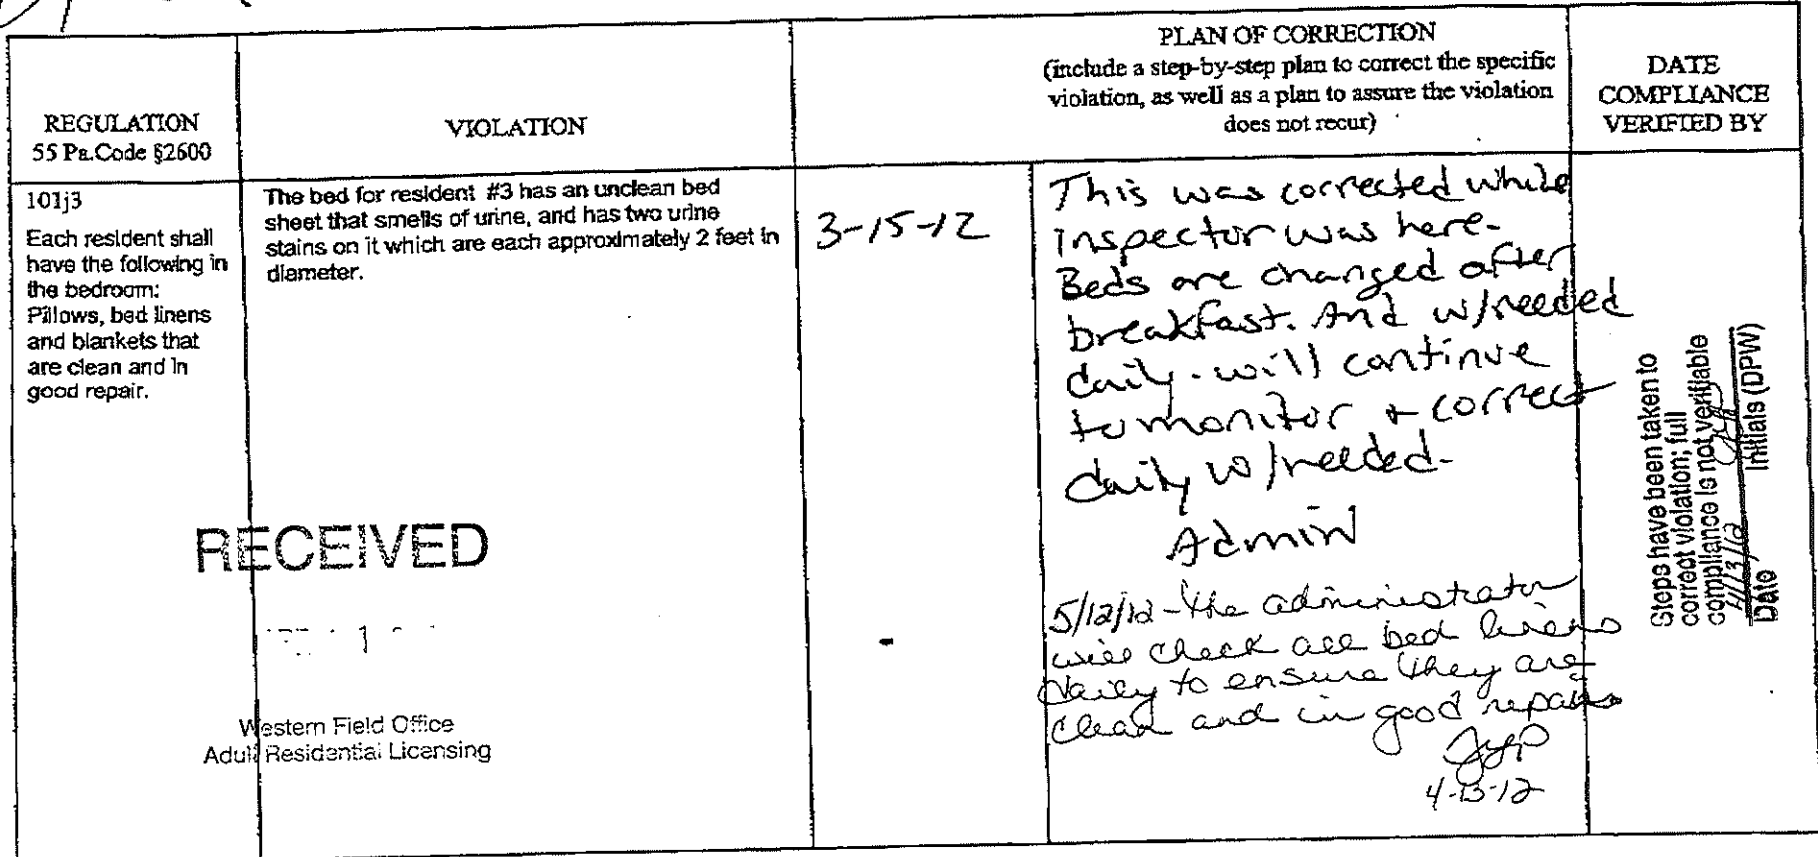 REGULATION
55 Pa.Code §2600
VIOLATION
PLAN OF CORRECTION
(include a step-by-step plan to correct the specific
violation, as well as a plan to assure the violation
does not recur)
DATE
COMPLIANCE
VERIFIED BY
101j3
Each resident shall
have the following in
the bedroom:
Pillows, bed linens
and blankets that
are clean and in
good repair.
The bed for resident #3 has an unclean bed
sheet that smells of urine, and has two urine
stains on it which are each approximately 2 feet in
diameter.
3-15-12
This was corrected while
inspector was here.
Beds are changed after
breakfast. And w/needed
daily. will continue
to monitor + correct
daily w/needed.
Admin
5/12/12 - the administrator
will check all bed linens
daily to ensure they are
clean and in good repair
4-13-12
Steps have been taken to
correct violation; full
compliance is not verifiable
4/13/12
Date Initials (DPW)
RECEIVED
Western Field Office
Adult Residential Licensing